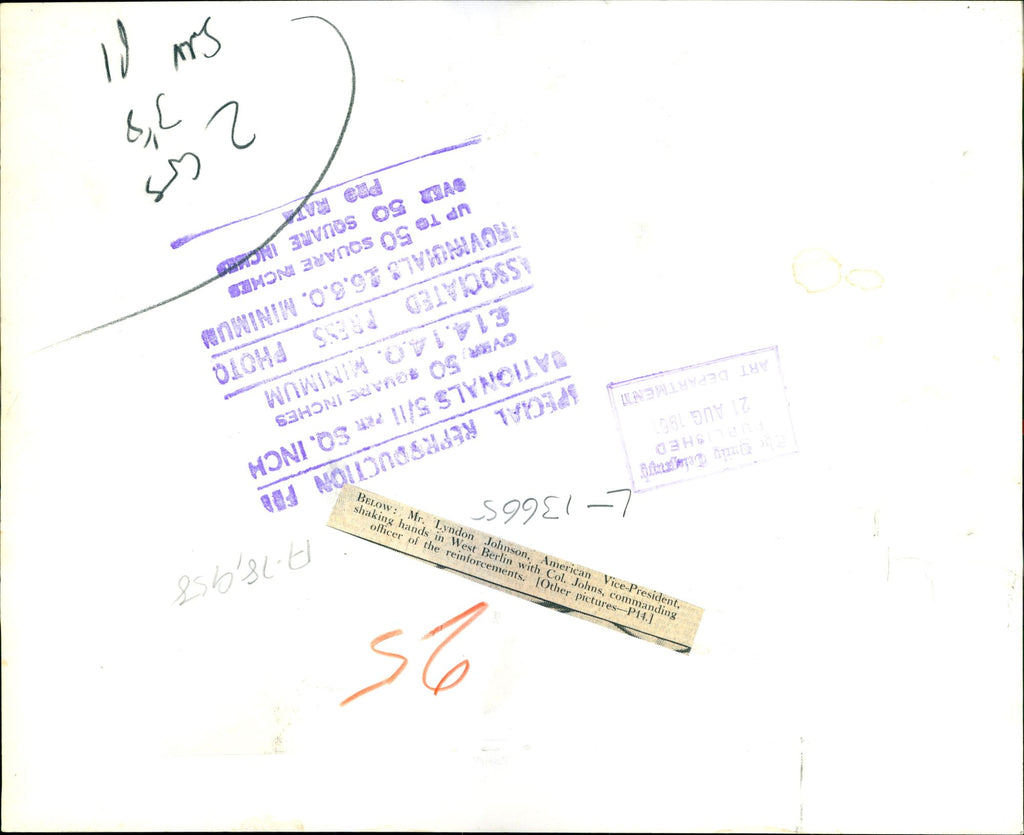 SPECIAL REPRODUCTION FEE
NATIONALS 5/11 PER SQ. INCH
OVER 50 SQUARE INCHES
£14.14.0. MINIMUM
ASSOCIATED PRESS PHOTO
PROVINCIALS £6.6.0. MINIMUM
UP TO 50 SQUARE INCHES
OVER 50 SQUARE INCHES
PRO RATA
The Daily Telegraph
PUBLISHED
21 AUG 196
ART DEPARTMENT
L-13665
BELOW: Mr. Lyndon Johnson, American Vice-President,
shaking hands in West Berlin with Col. Johns, commanding
officer of the reinforcements. [Other pictures—P14.]
A.78,958